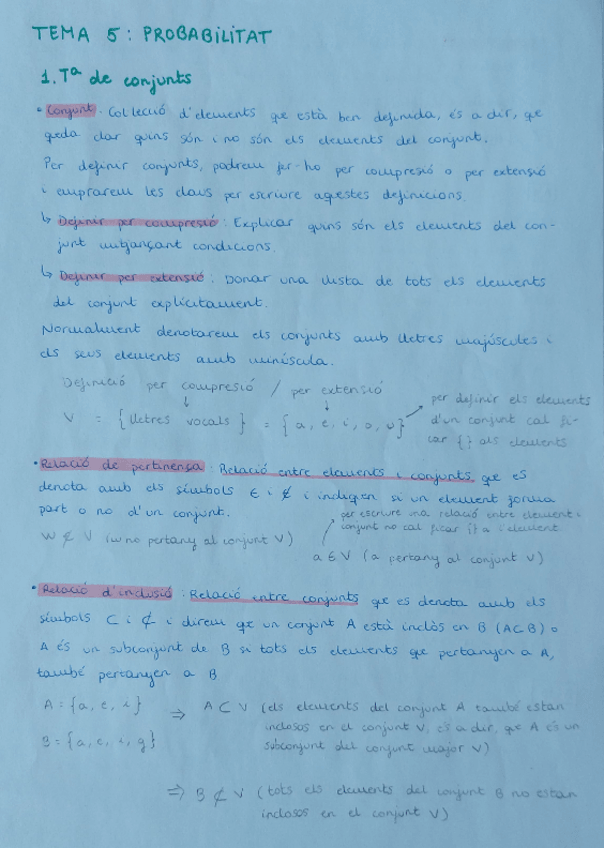 TEMA 5: PROBABILITAT
1. Tª de conjunts
• Conjunt: Col·lecció d'elements que està ben definida, és a dir, que
queda clar quins són i no són els elements del conjunt.
Per definir conjunts, podrem fer-ho per compresió o per extensió
i emprarem les claus per escriure aquestes definicions.
↳ Definir per compresió: Explicar quins són els elements del con-
junt mitjançant condicions.
↳ Definir per extensió: Donar una llista de tots els elements
del conjunt explícitament.
Normalment denotarem els conjunts amb lletres majúscules i
els seus elements amb minúscula.
Definició per compresió / per extensió
↓ ↓
V = {lletres vocals} = {a, e, i, o, u}
per definir els elements
d'un conjunt cal fi-
car {} als elements
• Relació de pertinença: Relació entre elements i conjunts que es
denota amb els símbols ∈ i ∉ i indiquen si un element forma
part o no d'un conjunt.
per escriure una relació entre element i
conjunt no cal ficar {} a l'element
w ∉ V (w no pertany al conjunt V)
a ∈ V (a pertany al conjunt V)
• Relació d'inclusió: Relació entre conjunts que es denota amb els
símbols ⊂ i ⊄ i direm que un conjunt A està inclòs en B (A⊂B) o
A és un subconjunt de B si tots els elements que pertanyen a A,
també pertanyen a B
A = {a, e, i} ⇒ A ⊂ V (els elements del conjunt A també estan
inclosos en el conjunt V, és a dir, que A és un
subconjunt del conjunt major V)
B = {a, e, i, g}
⇒ B ⊄ V (tots els elements del conjunt B no estan
inclosos en el conjunt V)